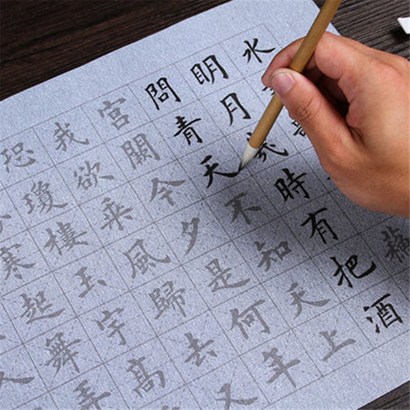 水
明月幾時有把酒
問青天不知天上
宮闕今夕是何年
我欲乘風歸去又
恐瓊樓玉宇高
寒起舞弄